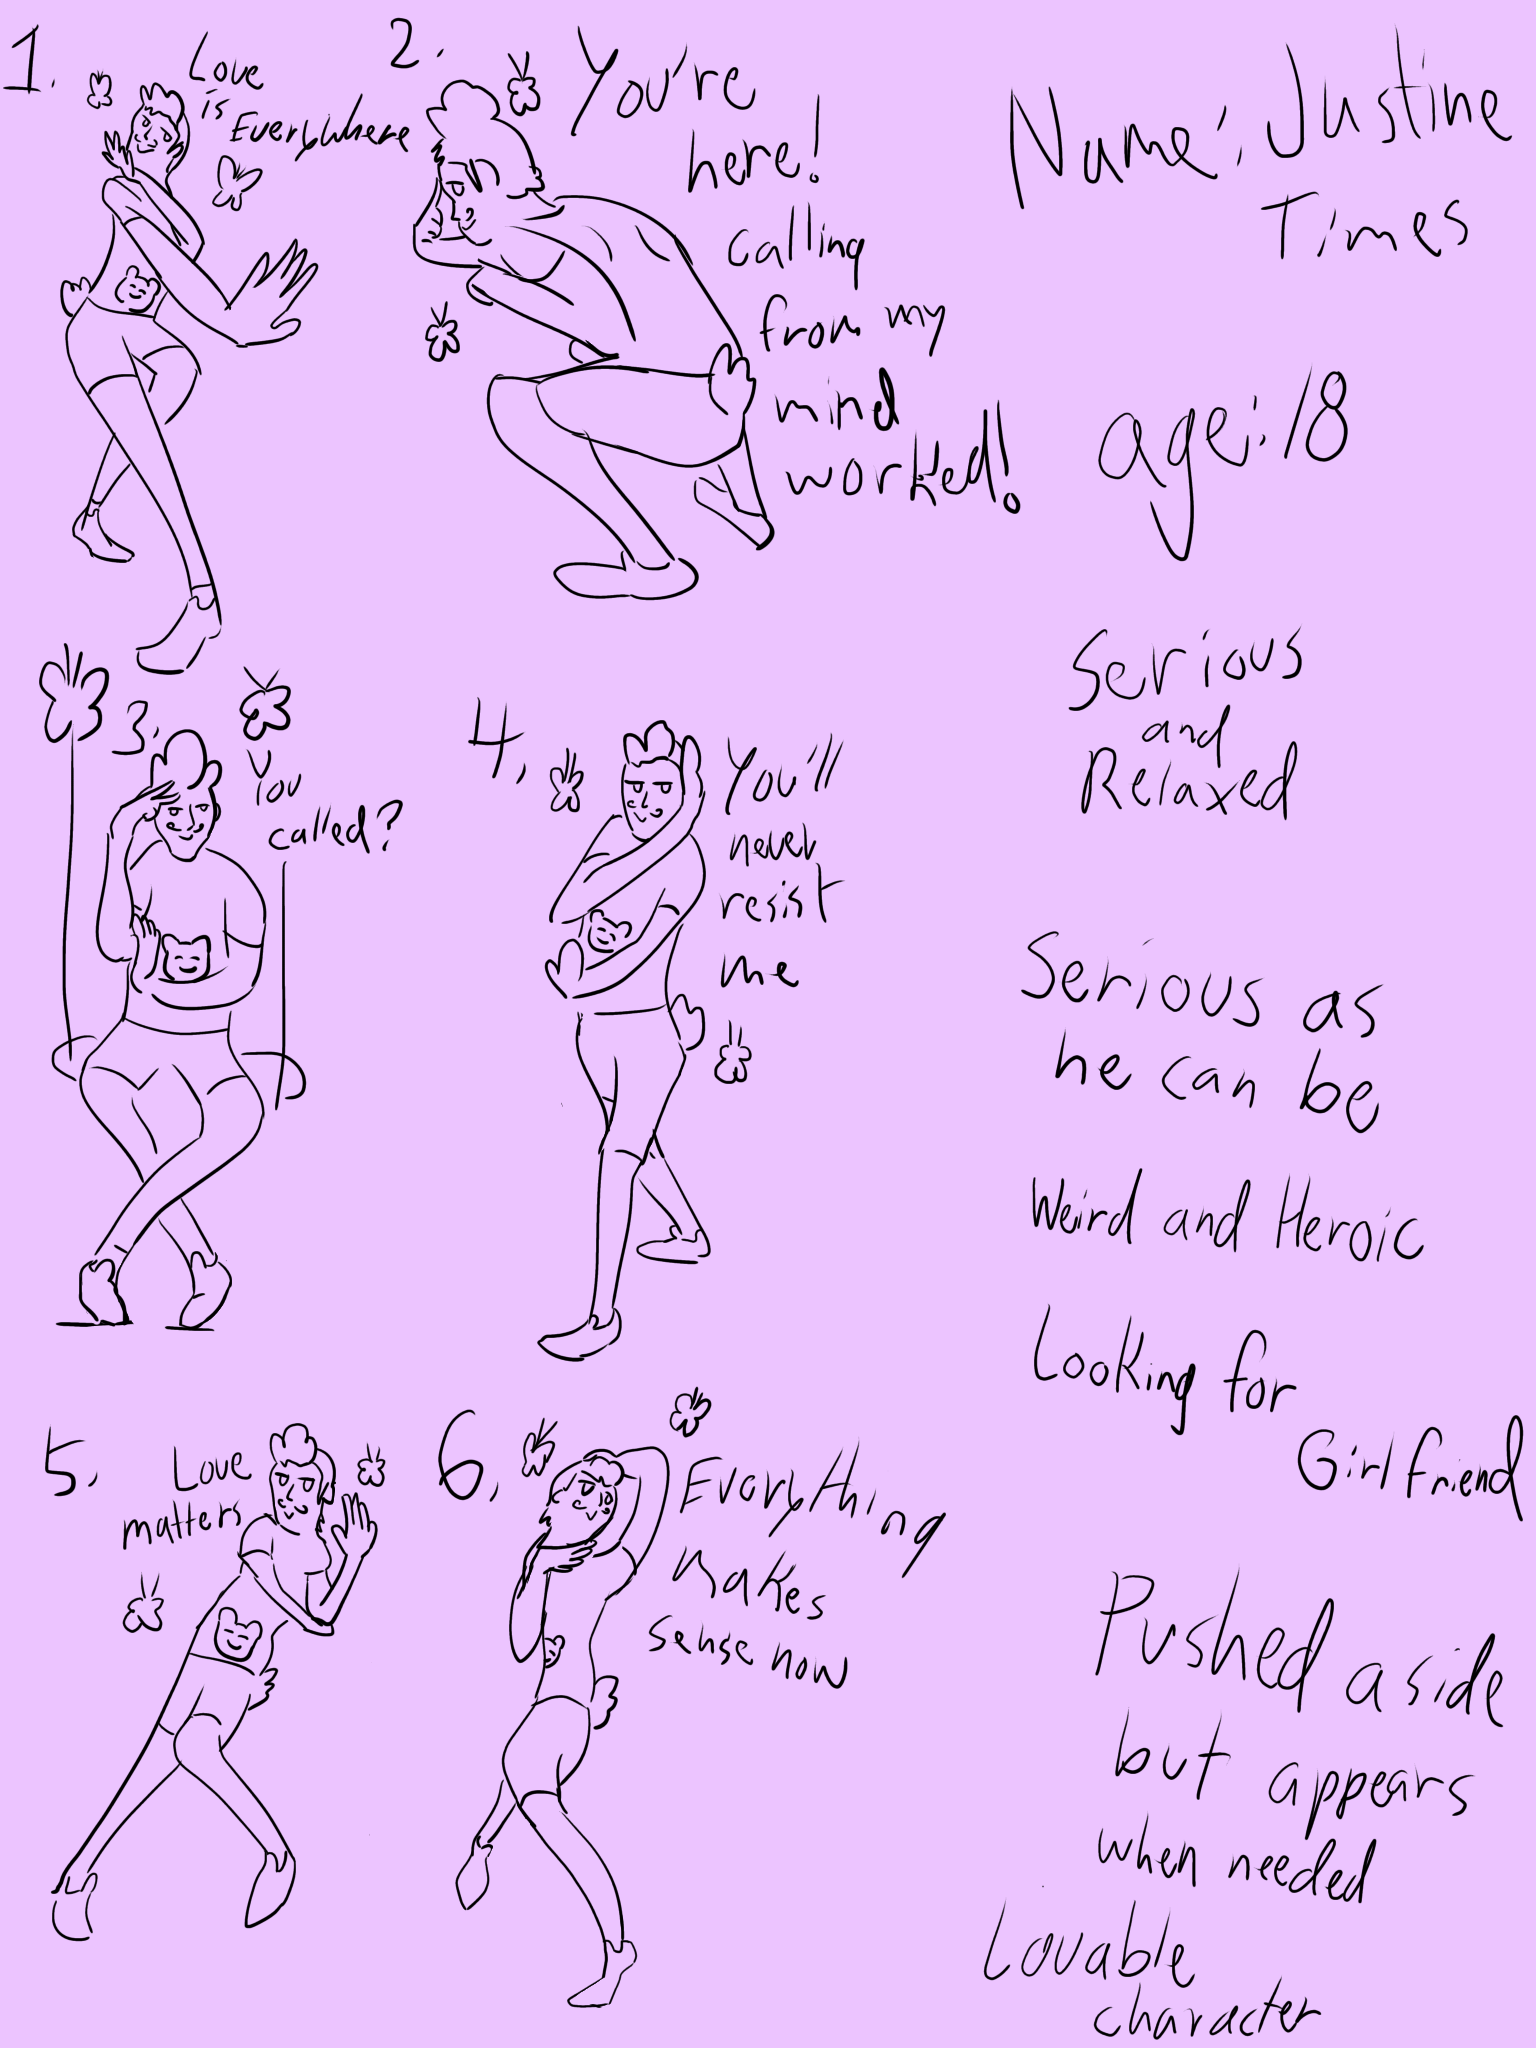 1.
Love
is
Everywhere
2.
You're
here!
calling
from my
mind
worked!
3.
You
called?
4.
You'll
never
resist
me
5.
Love
matters
6.
Everything
makes
sense now
Name: Justine
Times
age: 18
Serious
and
Relaxed
Serious as
he can be
Weird and Heroic
Looking for
Girlfriend
Pushed aside
but appears
when needed
Lovable
character